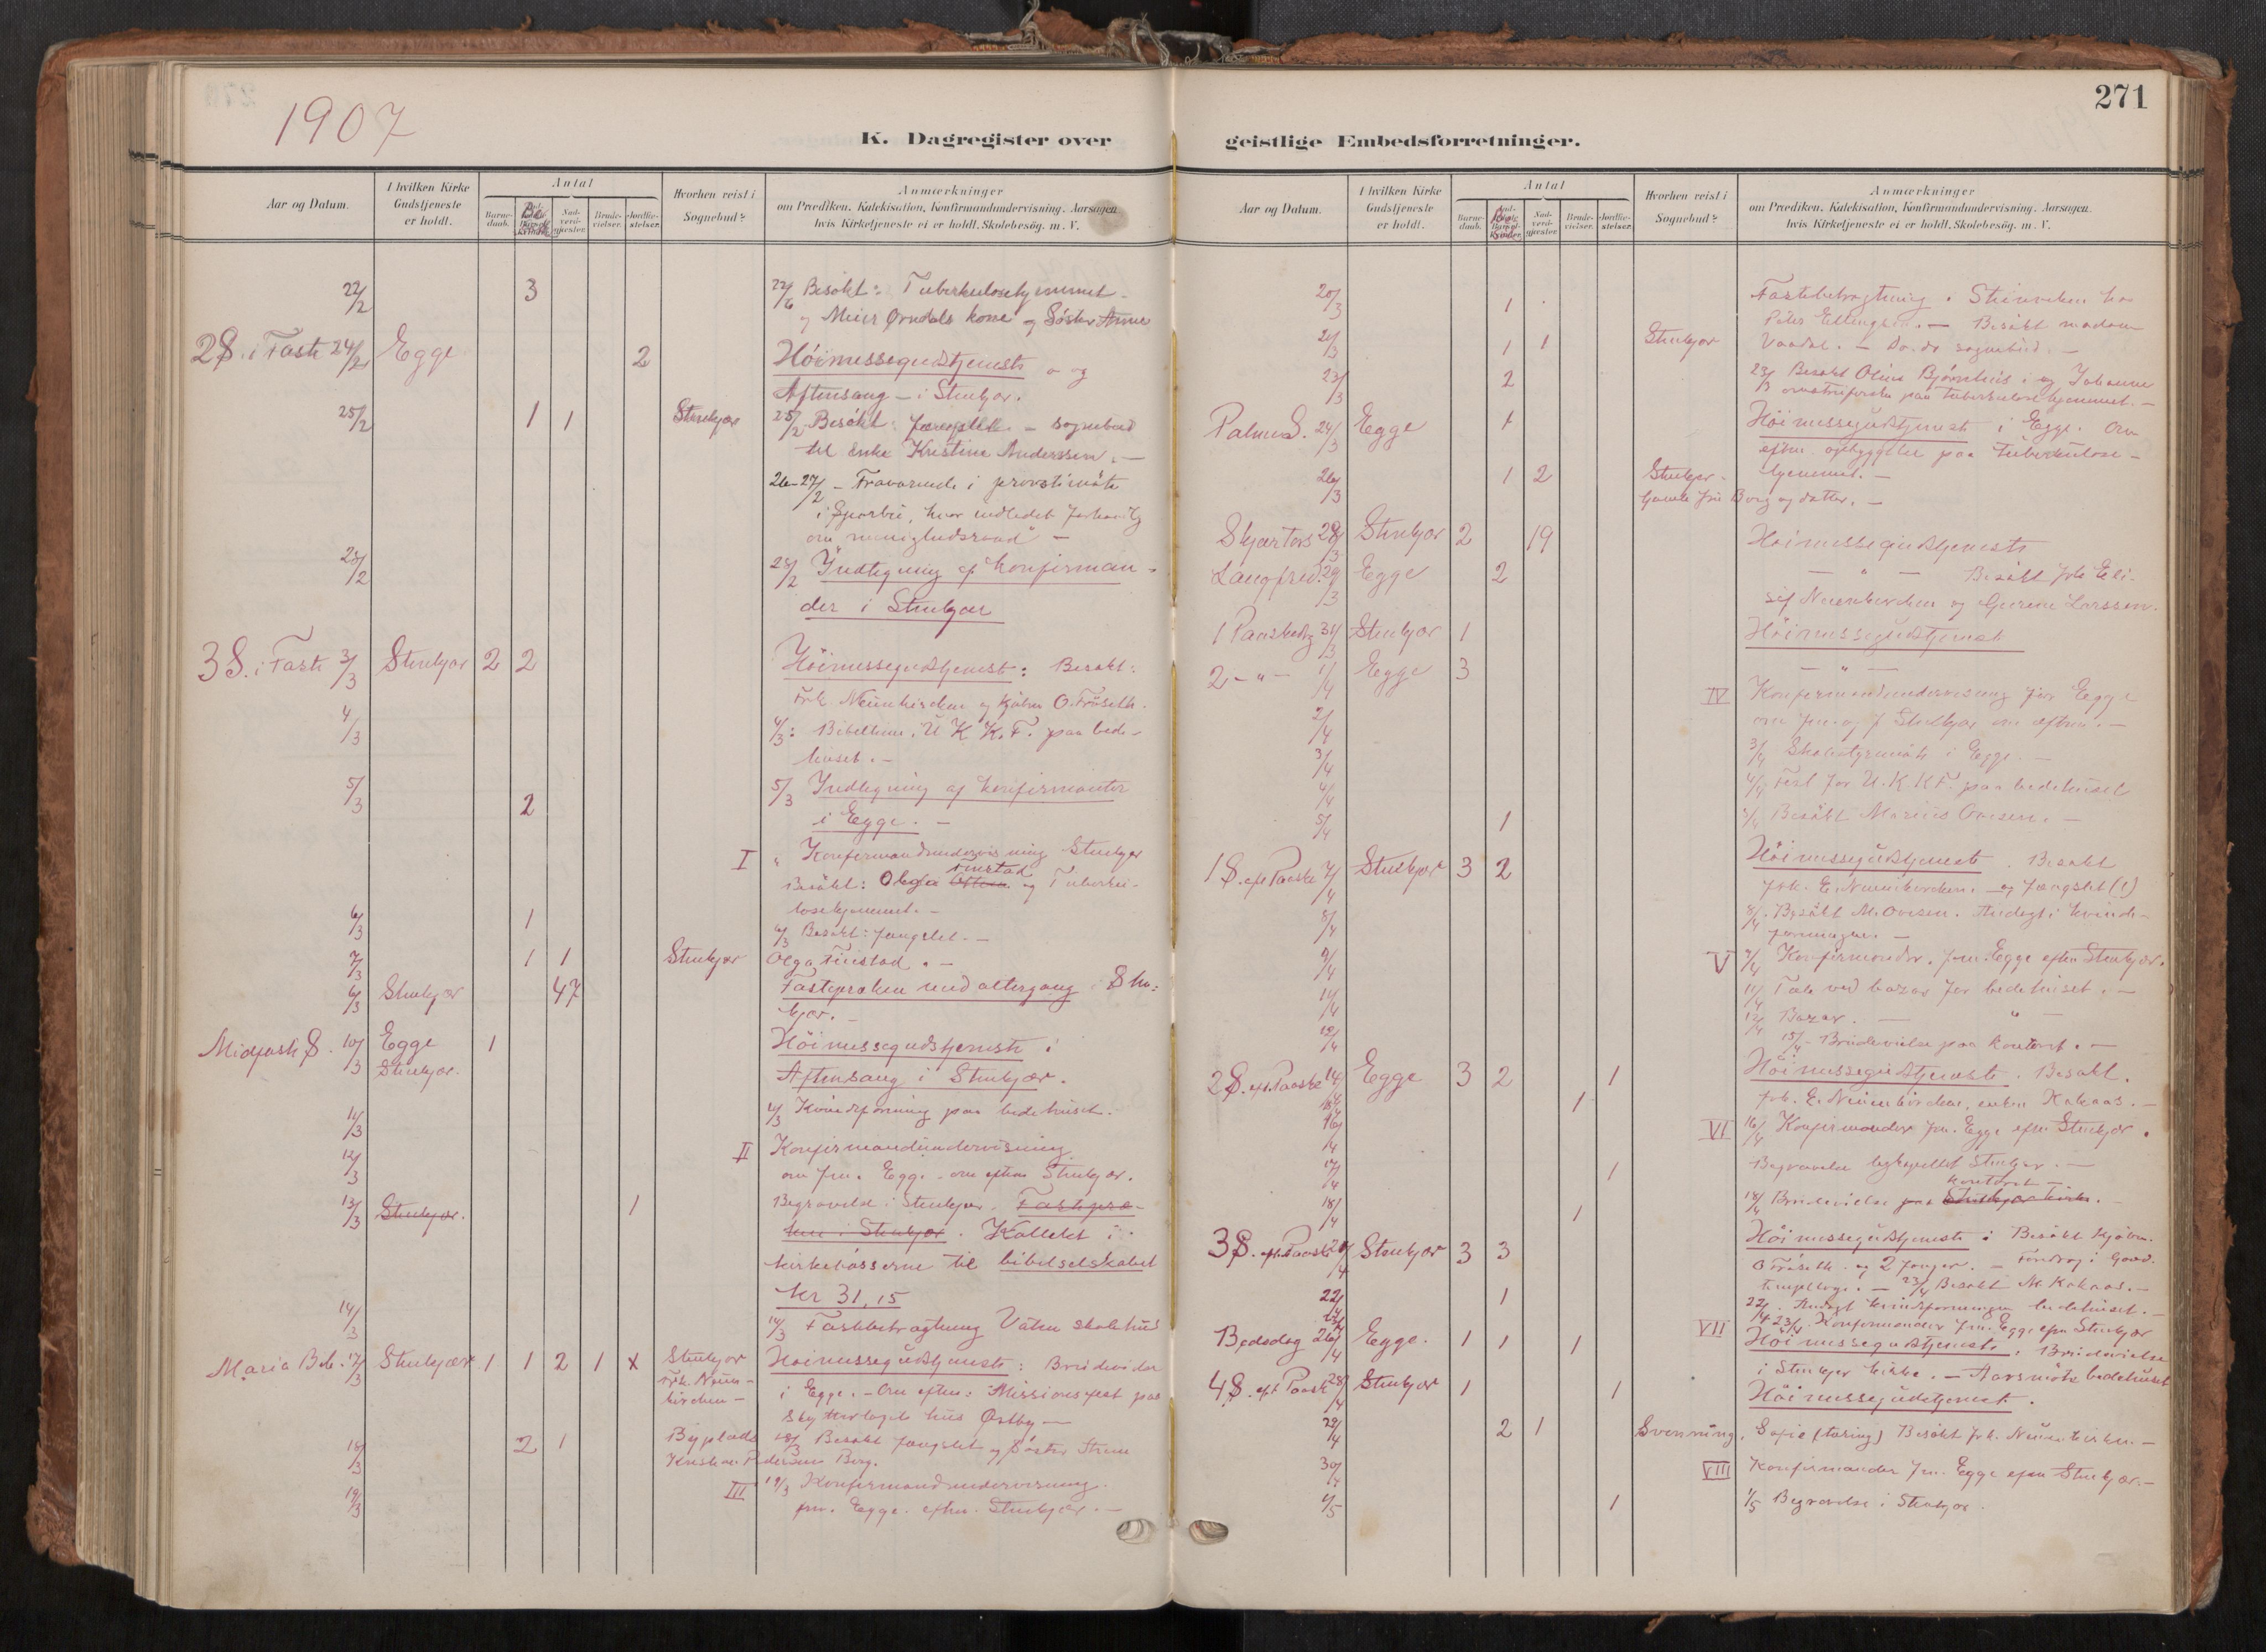 1907
271
K. Dagregister over geistlige Embedsforretninger.
Aar og Datum.
I hvilken Kirke Gudstjeneste er holdt.
Antal
Barne-daab.
Nad-verd-gjæster.
Brude-vielser.
Jordfæ-stelser.
Hvorhen reist i Sognebud?
Anmærkninger
om Prædiken. Katekisation, Konfirmandundervisning. Aarsagen,
hvis Kirketjeneste ei er holdt. Skolebesög. m. V.
22/2 3 Besøkt: Tuberkulosehjemmet
og Meier Ørndals kone og Søster Anne
2 S. i Faste 24/2 Egge 2 Höimessegudstjeneste og
Aftensang – i Stenkjær.
25/2 1 1 Stenkjær 25/2 Besökt: fængslet – sognebud
til Enke Kristine Anderssen. –
26-27/2 – Fraværende i provstimöte
i Sparbu, hvor indledet
om menighedsraad –
28/2 28/2 Indtegning af konfirman-
der i Stenkjær
3 S. i Faste 3/3 Stenkjær 2 2 Höimessegudstjeneste: Besökt:
Frk. Neuenkirchen og Kjöbm O. Fröseth.
4/3 4/3: Bibeltime. U. K. K. F. paa bede-
huset. –
5/3 2 5/3 Indtegning af konfirmanter
i Egge. –
I " Konfirmandundervisning Stenkjær
Besökt: Olga Finstad og Tuberku-
losehjemmet. –
6/3 1 6/3 Besökt: fængslet. –
7/3 1 1 Stenkjær Olga Finstad. –
6/3 Stenkjær 47 Fastepræken med altergang i Sten-
kjær. –
Midfaste S. 10/3 Egge 1 Höimessegudstjeneste i
Stenkjær. Aftensang i Stenkjær.
11/3 11/3 Kvindeforening paa bedehuset.
12/3 II Konfirmandundervisning
om fm. Egge – om efterm Stenkjær.
13/3 Stenkjær. 1 Begravelse i Stenkjær. Fastepræ-
ken i Stenkjær. Kollekt i
kirkebösserne til bibelselskabet
kr 31,15
14/3 14/3 Fastebetragtning Våten skolehus
Maria Beb. 17/3 Stenkjær 1 1 2 1 x Stenkjær Höimessegudstjeneste: Brudevielse
Frk. Neuen- i Egge. – Om efterm: Missionsfest paa
kirchen – Skytterlagets hus Østby –
18/3 2 1 Byplads 18/3 Besökt fængslet og Söster
Kristian Pedersen Berg.
19/3 III 19/3 Konfirmandundervisning.
fm. Egge. efterm. Stenkjær. –
Aar og Datum.
I hvilken Kirke Gudstjeneste er holdt.
Antal
Barne-daab.
Nad-verd-gjæster.
Brude-vielser.
Jordfæ-stelser.
Hvorhen reist i Sognebud?
Anmærkninger
om Prædiken. Katekisation, Konfirmandundervisning. Aarsagen.
hvis Kirketjeneste ei er holdt, Skolebesög. m. V.
20/3 1 Fastebetragtning. hos
Peter Ellingsen. – Besökt madam
21/3 1 1 Stenkjær sognebud. –
23/3 2 23/3 Besökt Olius Bjørnhus i og Johanne
paa tuberkulosehjemmet. –
Palmes. 24/3 Egge 1 Höimessegudstjeneste i Egge. Om
efterm. opbyggelse paa tuberkulose-
26/3 1 2 Stenkjær. hjemmet. –
Gamle fru Borg og datter. –
Skjærtors 28/3 Stenkjær 2 19 Höimessegudstjeneste
Langfred. 29/3 Egge 2 – " – Besökt frk Eli-
sif Neuenkirchen og Gurine Larssen.
1 Paaskedg 31/3 Stenkjær 1 Höimessegudstjeneste
2 – " – 1/4 Egge 3 – " –
IV Konfirmandundervisning for Egge
2/4 om fm. og f Stenkjær om efterm. –
3/4 3/4 Skolestyremöte i Egge –
4/4 4/4 Fest for U. K. K. F. paa bedehuset
5/4 1 5/4 Besökt Marius Ovesen. –
1 S. eft Paaske 7/4 Stenkjær 3 2 Höimessegudstjeneste. Besökt
frk. E. Neuenkirchen. – og fængslet (1)
8/4 8/4. Besökt M. Ovesen. Andagt i kvinde-
foreningen. –
9/4 V 9/4 Konfirmander. fm. Egge efterm Stenkjær.
11/4 11/4 Tale ved bazar for bedehuset. –
12/4 12/4 Bazar. – " –
15/4 – Brudevielse paa kontoret. –
2 S. eft Paaske 14/4 Egge 3 2 1 Höimessegudstjeneste. Besökt.
15/4 1 frk. E. Neuenkirchen, enken Kakaas. –
16/4 VI 16/4 Konfirmander fm. Egge efterm Stenkjær.
17/4 1 Begravelse ligkapellet Stenkjær. –
kontoret –
18/4 1 18/4 Brudevielse paa Stenkjær kirke. –
3 S. eft. Paaske 21/4 Stenkjær 3 3 Höimessegudstjeneste: Besökt Kjöbm.
O Fröseth. og 2 fanger. – Foredrag i Good-
22/4 1 templloge. – 23/4 Besökt M. Kakaas. –
22/4. Andagt kvindeforeningen bedehuset. –
VII 23/4. Konfirmander fm. Egge efm Stenkjær
Bededag 26/4 Egge. 1 1 1 Höimessegudstjeneste. Brudevielse
i Stenkjær kirke. – Aarsmöte bedehuset
4 S. eft Paaske 28/4 Stenkjær 1 1 Höimessegudstjeneste.
29/4 2 1 Svenning, Sofie (tæring) Besökt frk. Neuenkirken. –
30/4 VIII Konfirmander fm. Egge efm Stenkjær. –
1/5 1 1/5 Begravelse i Stenkjær.